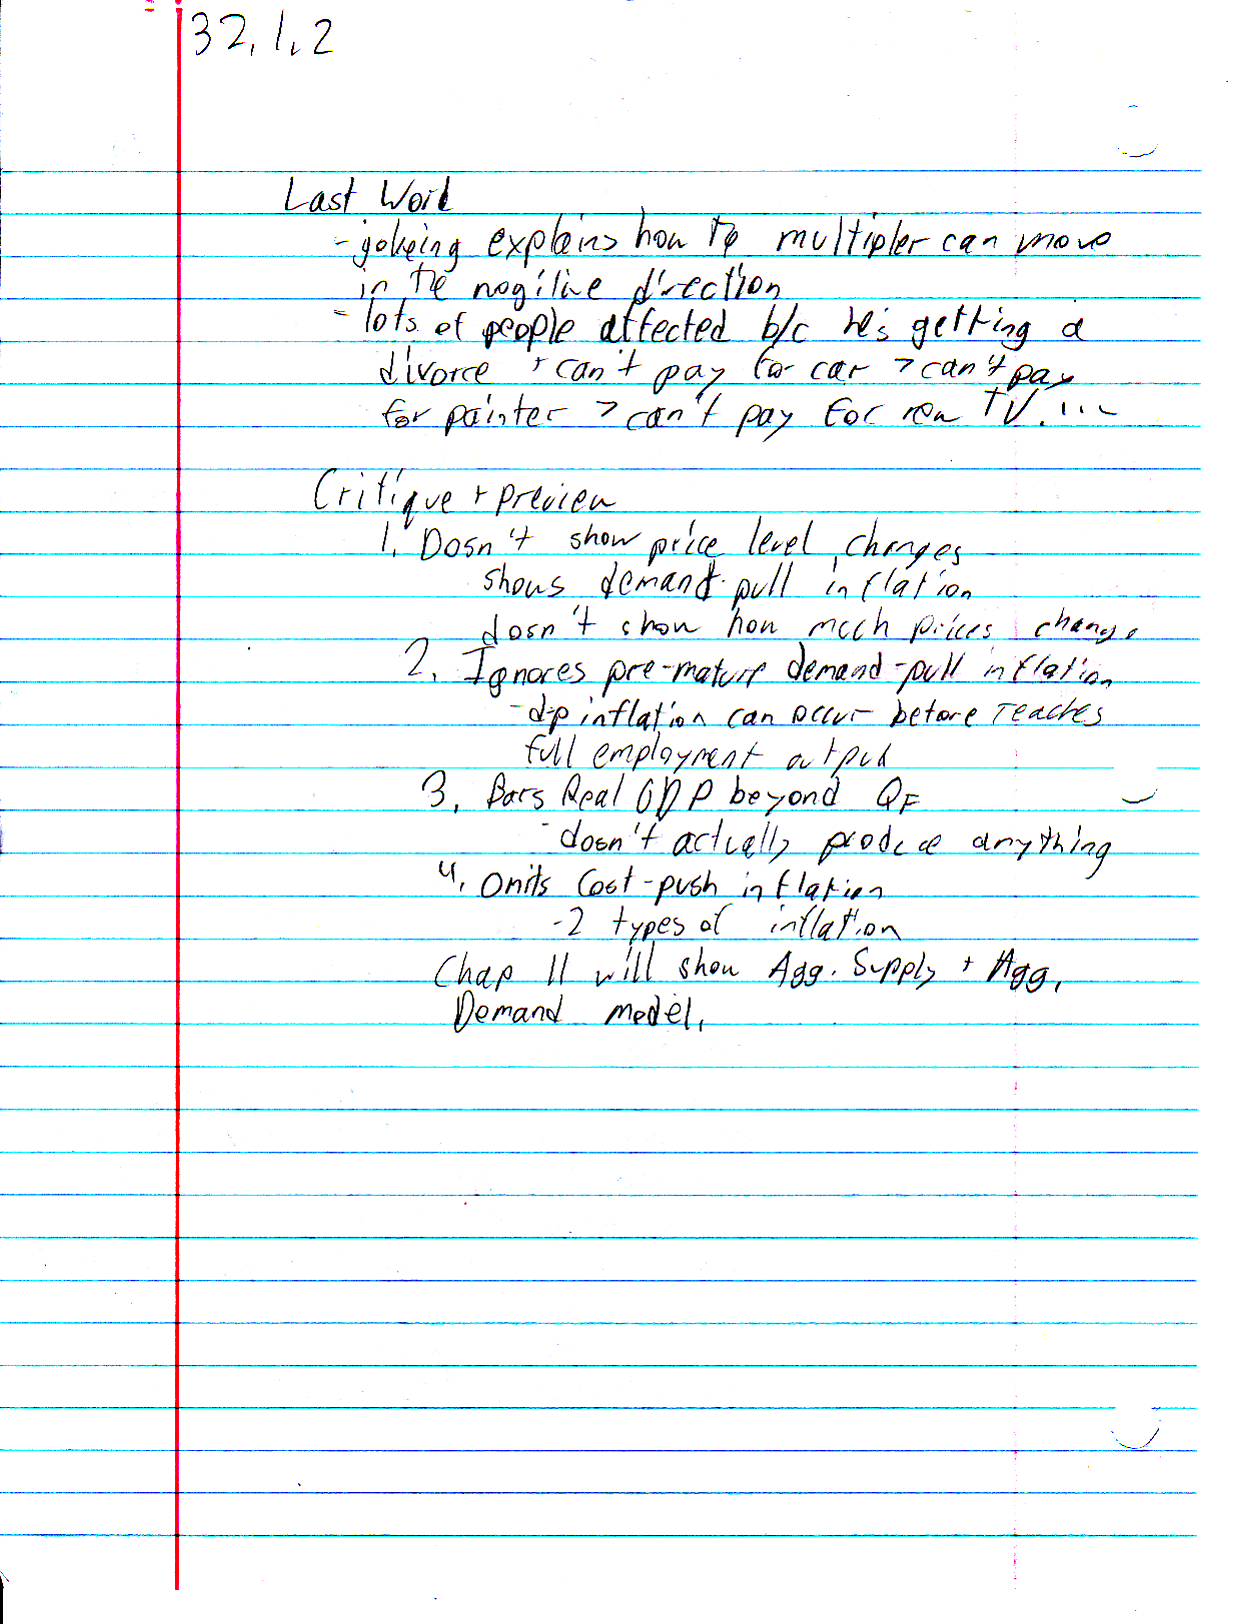 32.1.2
Last Word
- jokeing explains how the multipler can move
in the negitive direction
- lots of people affected b/c he's getting a
divorce + can't pay for car > can't pay
for painter > can't pay for new TV....
Critique + preview
1. Dosn't show price level changes
shows demand-pull inflation
dosn't show how much prices change
2. Ignores pre-mature demand-pull inflation
- d-p inflation can occur before reaches
full employment output
3. Bars Real GDP beyond QF
- dosn't actually produce anything
4. Omits Cost-push inflation
- 2 types of inflation
Chap 11 will show Agg. Supply + Agg.
Demand model.